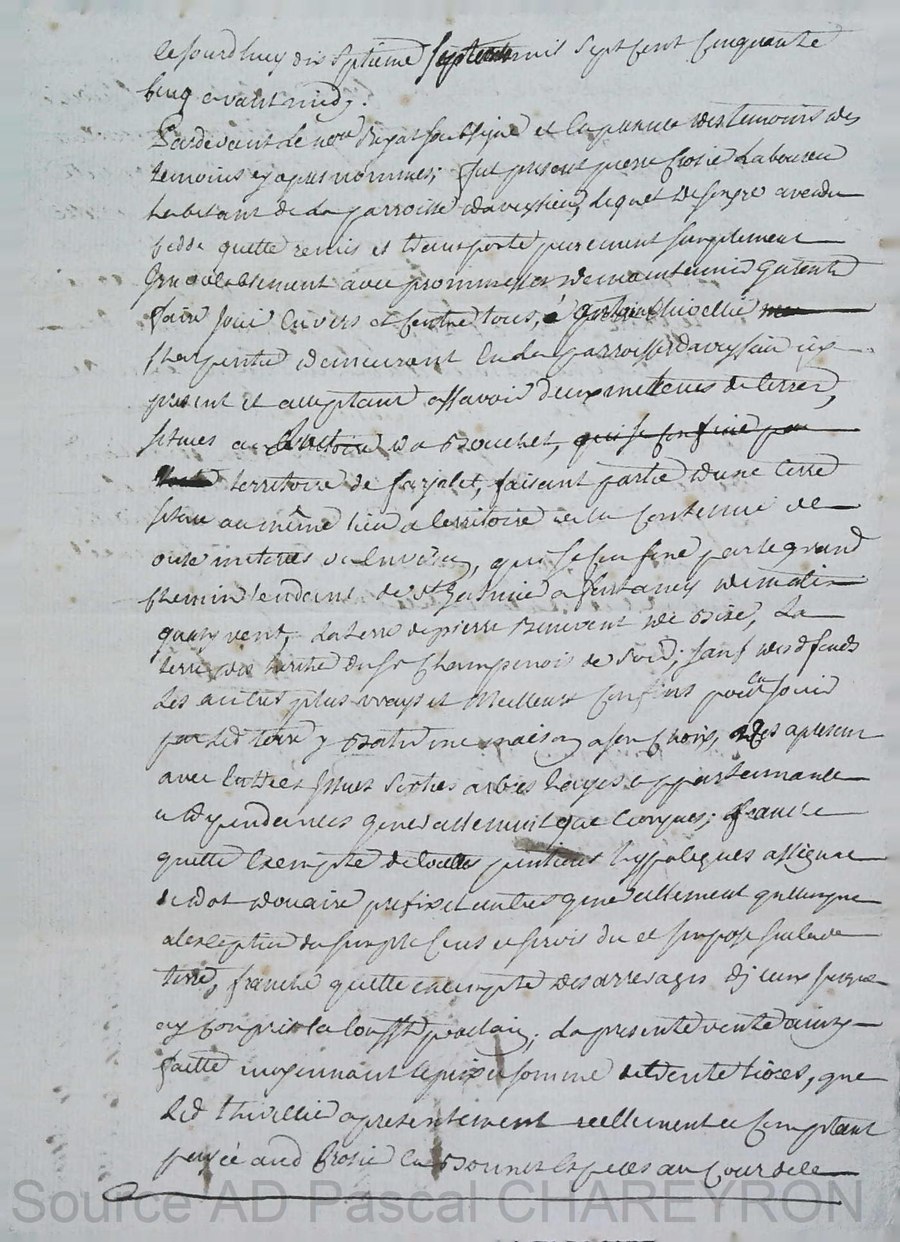 ce jourdhuy dix septieme septem mil sept cent cinquante
cinq avant midy.
Pardevant le not.re soussigné et en presence des temoins
temoins cy apres nommés; fut present pierre Crosie laboureu
habitant de la parroisse daveysieu, lequel de son gré a vendu
cedde quitte remis et transporté purement simplement
irrevocablement avec promesse de maintenir garentir
faire jouir envers et contre tous, à Thivellié
charpentie demeurant en la parroisse daveysieu icy
present et acceptant assavoir deux metterées de terre,
situés au territoire du Bouchet, qui se confine par
territoire de farjalet, faisant partie d'une terre
situe au même lieu et territoire de la contenue de
onze metterés ou environ, qui se confine par le grand
chemin tendant de St Galmier a fontaney de matin
quatry vent, la terre de pierre Benevent de bize, la
terre des heritie du sr Champenois de soir; sauf desd. fonds
les autres plus vrays et meilleurs confins pour en jouir
par led terre y batir une maison a son choix, des a present
avec entrées issues sorties arbres hayes appartenances
et deppendances generallement quelconques; franche
quitte exempte de toutes pentions hyppoteques assignaon
de dot douaire prefix et autres generallement quelconque
a lexception du simple cens et servis du et imposé sur lade
terre, franche quitte et exempte des arrerages diceux jusque
cy compris la Toussts. prochain; la presente vente ainsy
faitte moyennant le prix et somme de trente livres, que
led Thivellié a presentement reellement et comptant
payée aud Crosie en bonnes especes au cour de le
Source AD Pascal CHAREYRON